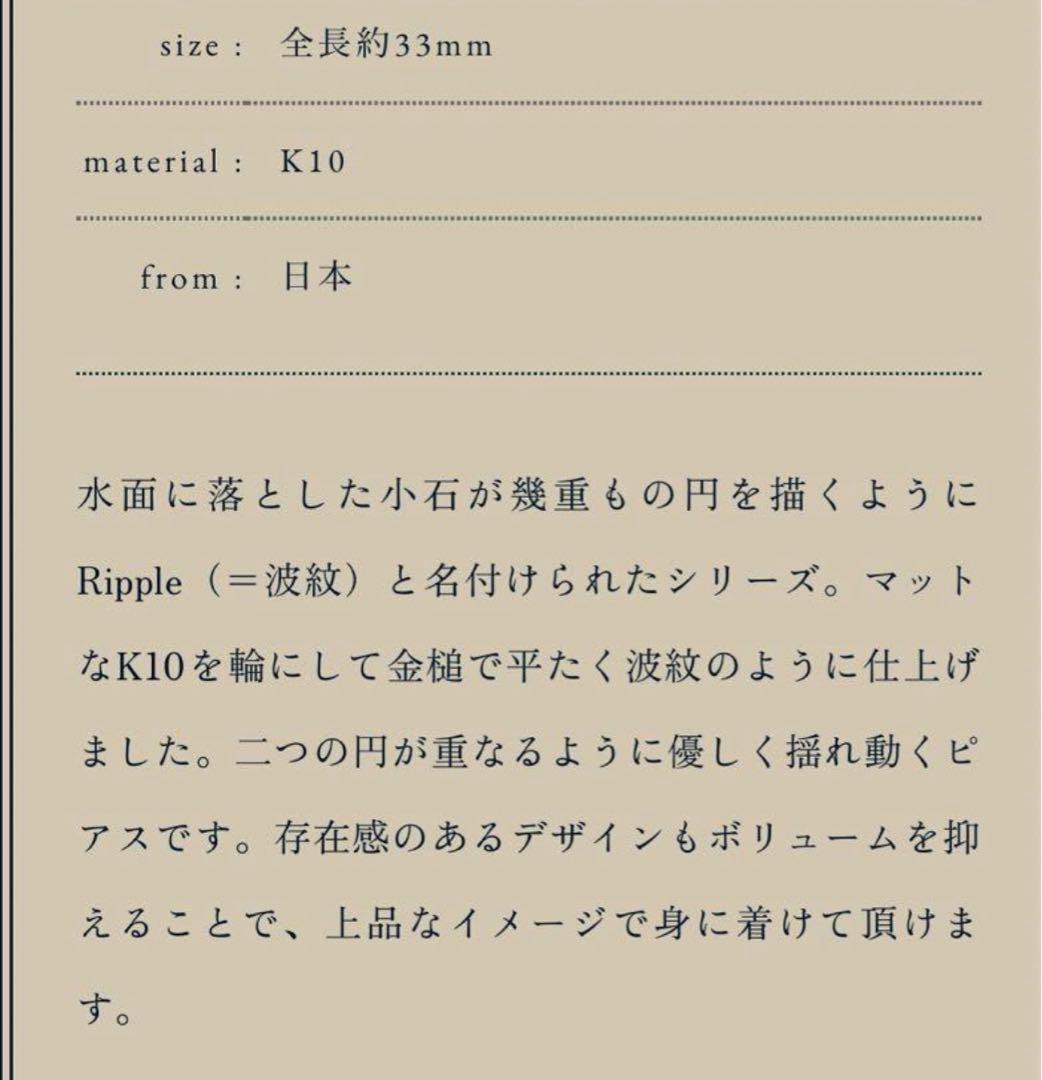 size : 全長約33mm
material : K10
from : 日本
水面に落とした小石が幾重もの円を描くように
Ripple（＝波紋）と名付けられたシリーズ。マット
なK10を輪にして金槌で平たく波紋のように仕上げ
ました。二つの円が重なるように優しく揺れ動くピ
アスです。存在感のあるデザインもボリュームを抑
えることで、上品なイメージで身に着けて頂けま
す。